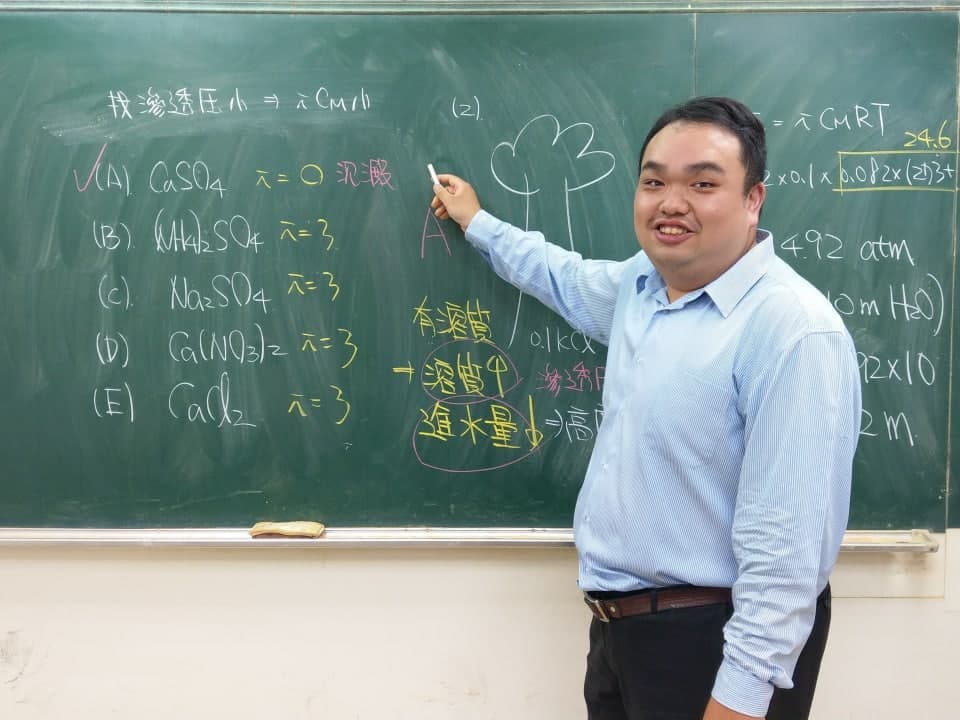 找滲透压小 ⇒ iCM小
(A) CaSO4 i=0 沉澱
(B). (NH4)2SO4 i=3.
(C). Na2SO4 i=3
(D) Ca(NO3)2 i=3
(E) CaCl2 i=3
(2).
A
有溶質
→ 溶質↑
進水量↓ ⇒高
0.1 KCl
滲透压
= iCMRT
24.6
2×0.1×0.082×(27)3+
4.92 atm
10mH2O)
92×10
2m